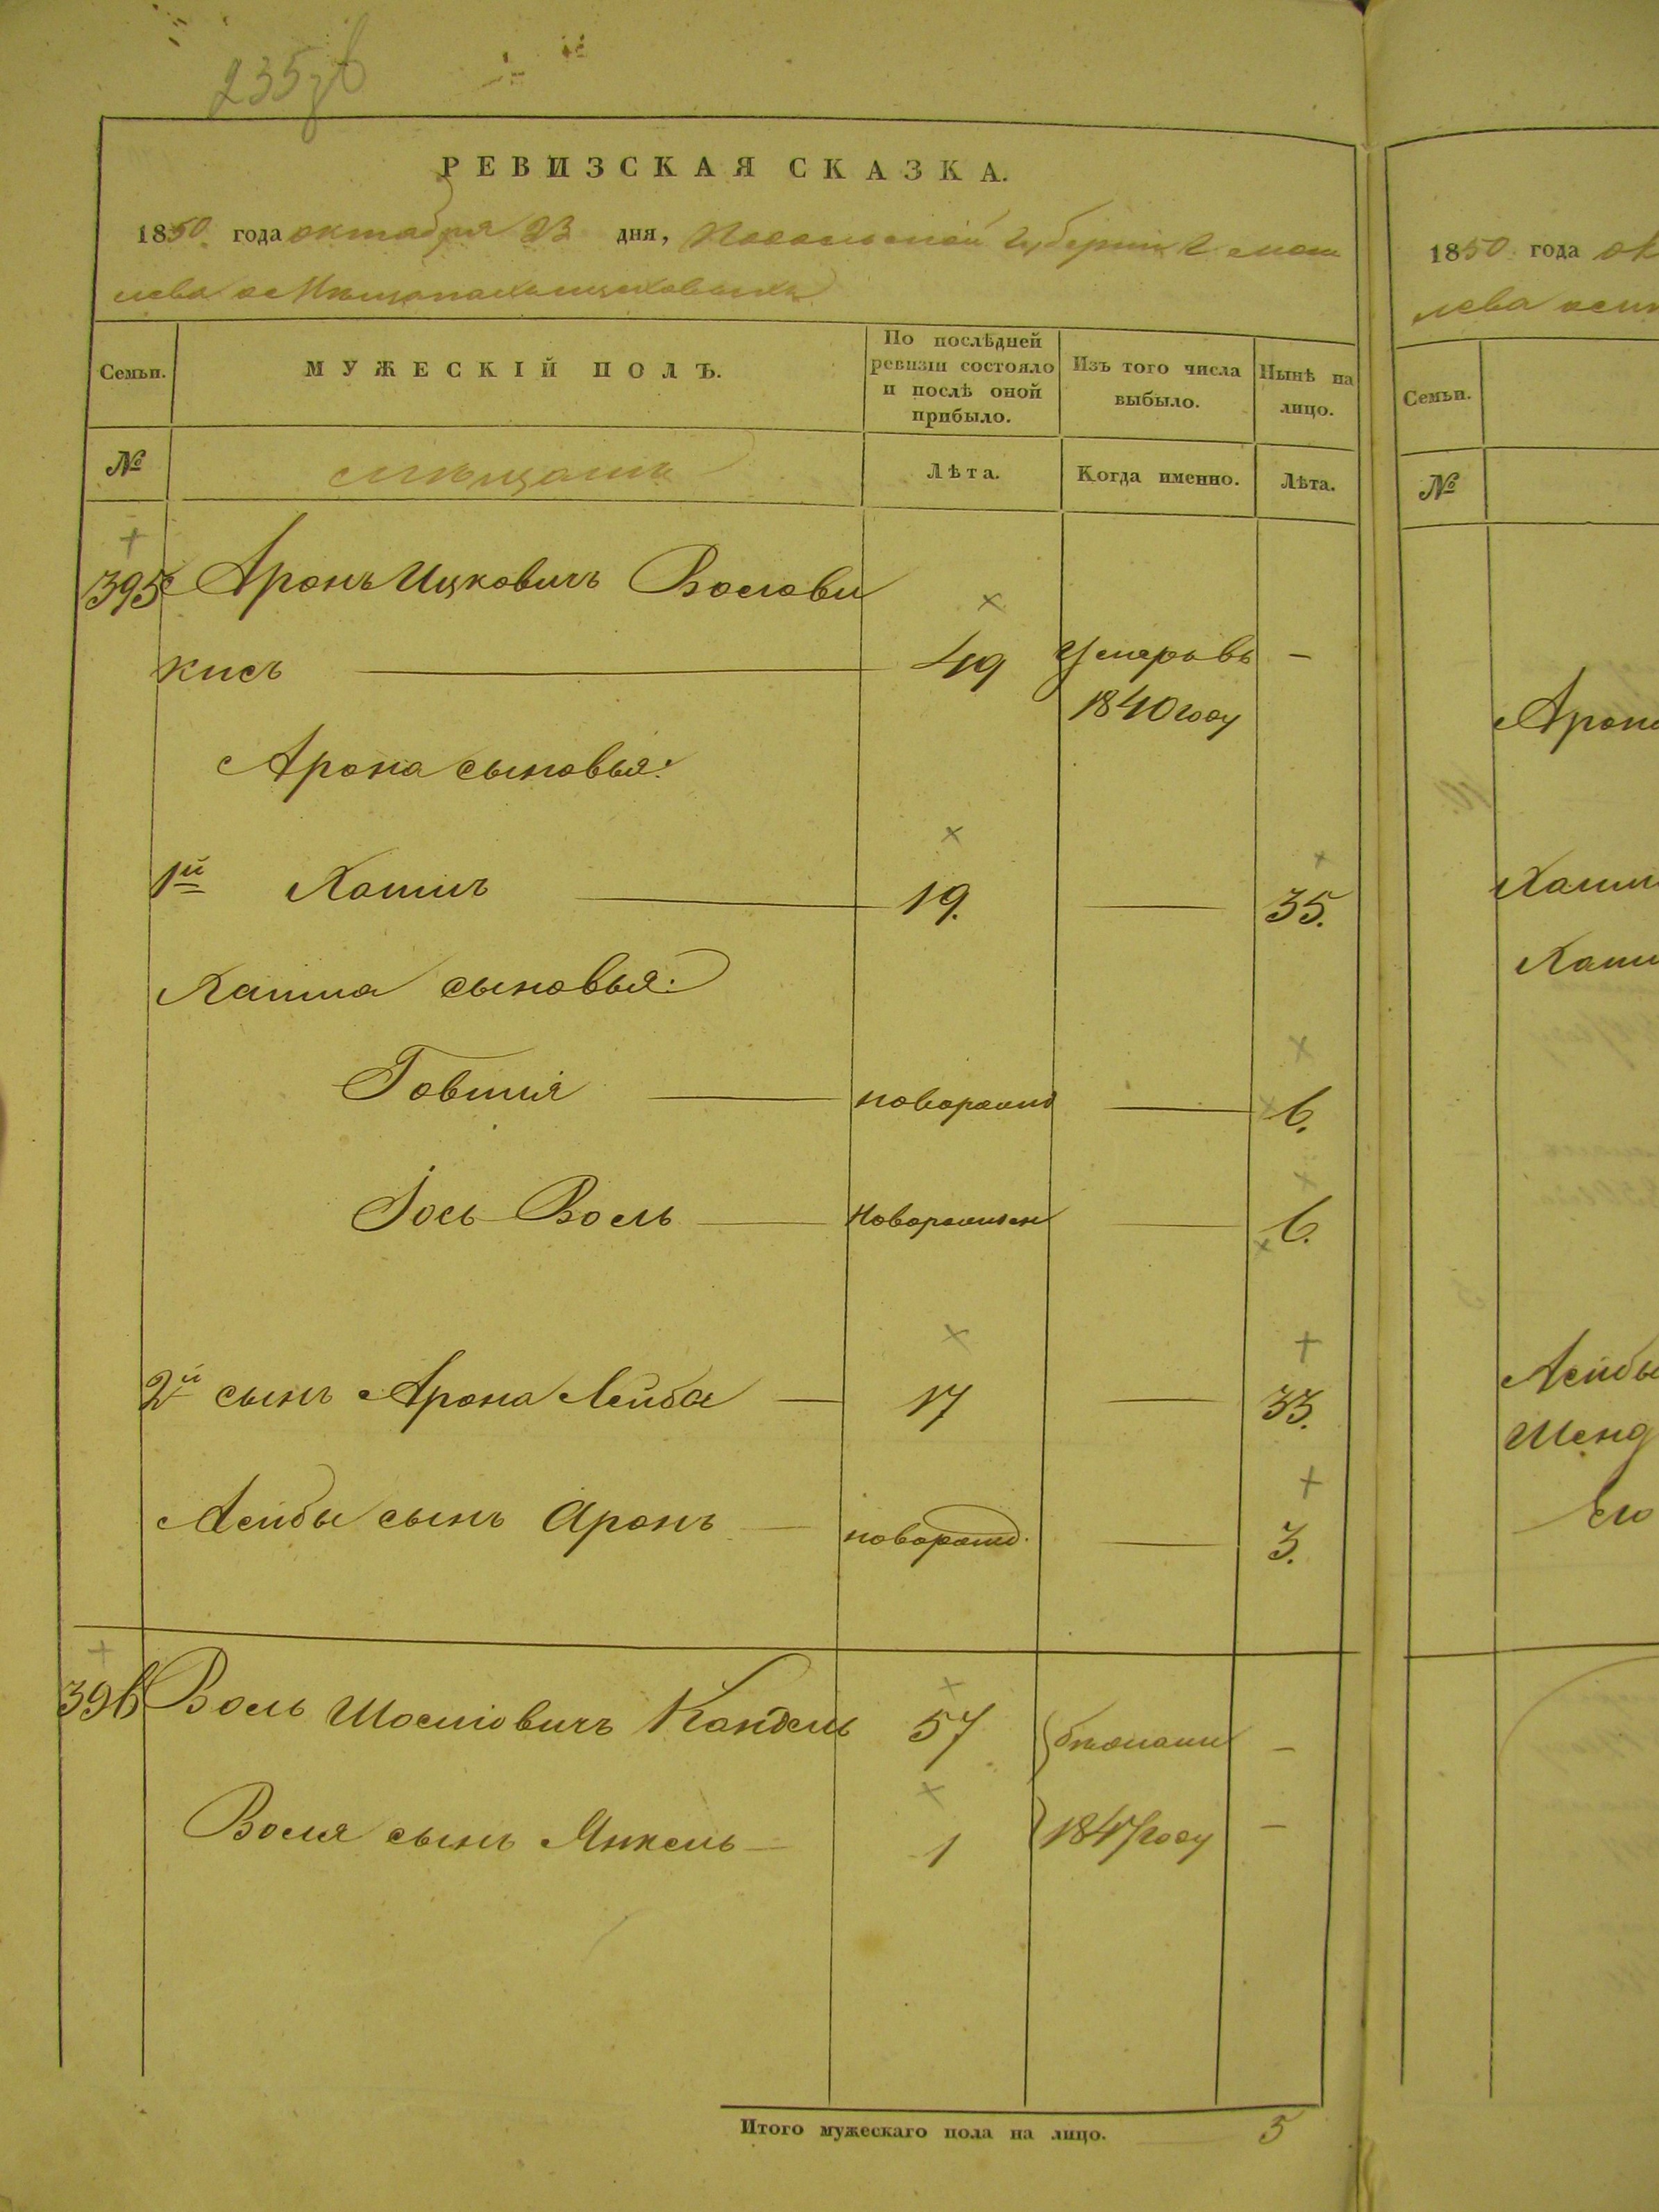 235 об
РЕВИЗСКАЯ СКАЗКА.
1850 года октября 23 дня, Подольской Губернии Г. Моги
лева о Мѣщанахъ
Семьи.
МУЖЕСКІЙ ПОЛЪ.
По послѣдней ревизіи состояло и послѣ оной прибыло.
Изъ того числа выбыло.
Нынѣ на лицо.
№
мѣщане
Лѣта.
Когда именно.
Лѣта.
395 Аронъ Ицковичъ
49 Умеръ въ —
1840 году
Арона сыновья:
1й Хаимъ 19. 35.
Хаима сыновья:
Товшія новорожд 6.
Іось Воль новорожден 6.
2й сынъ Арона Лейба 17 33.
Лейбы сынъ Аронъ новорожд. 3.
396 Воль Кандель 57 бѣжали —
Воля сынъ Янкель 1 1847 году —
Итого мужескаго пола на лицо. 5
1850 года ок
лева
Семьи.
№
Арона
Хаим
Хаим
Лейбы
Шенд
Его